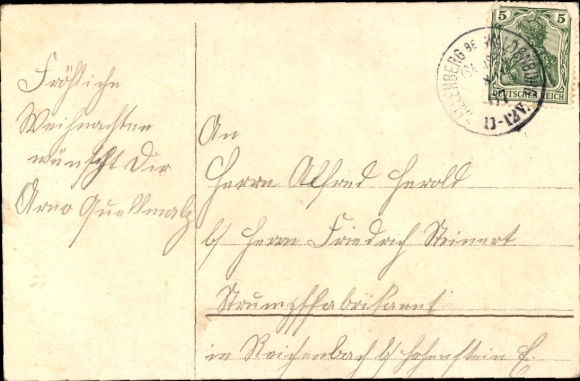 Fröhliche
Weihnachten
wünscht Dir
Arno Quellmalz
An
Herrn Alfred Herold
b/ Herrn Friedrich Steinert
Strumpffabrikant
in Reichenbach b/ Hohenstein E.
5 5
DEUTSCHES REICH
CALLENBERG BEI WALDENBURG
11-12V.